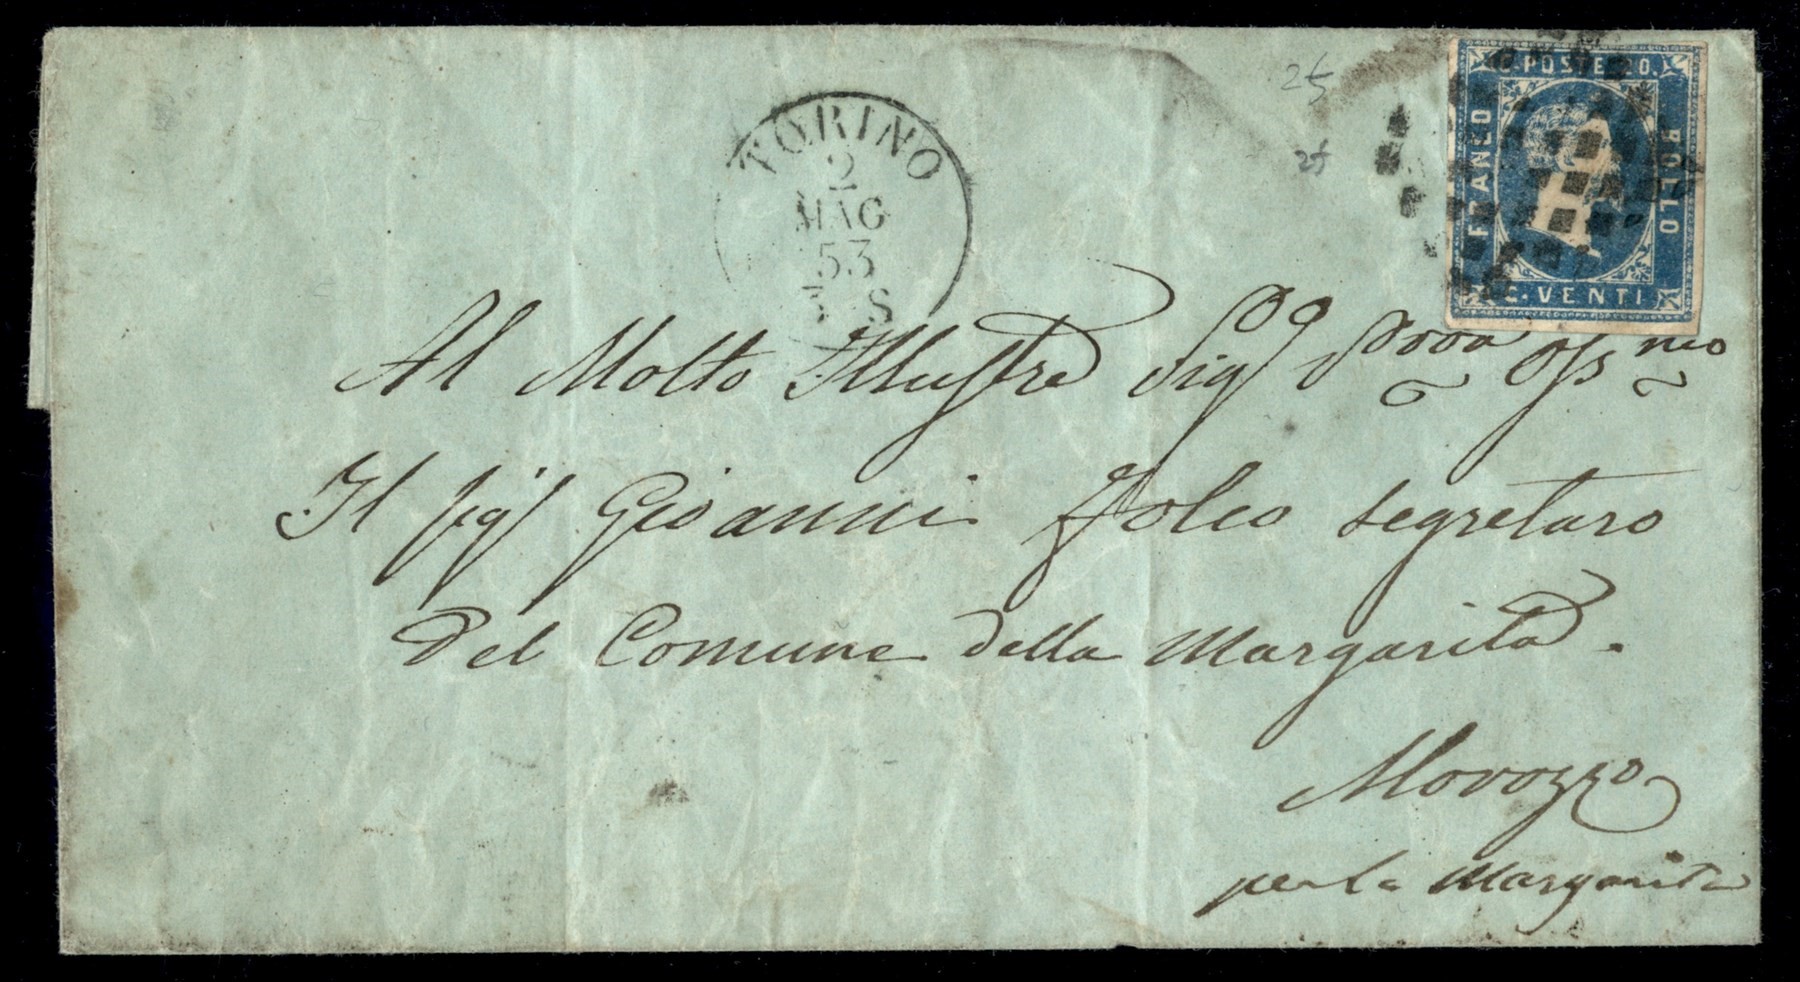 C. POSTE 20.
FRANCO
BOLLO
C. VENTI
25
25
TORINO
2
MAG
53
S
Al Molto Illustre Sig.
Il Sig. Giovanni Folco segretaro
Del Comune della Margarita.
Morozzo
per la Margarita